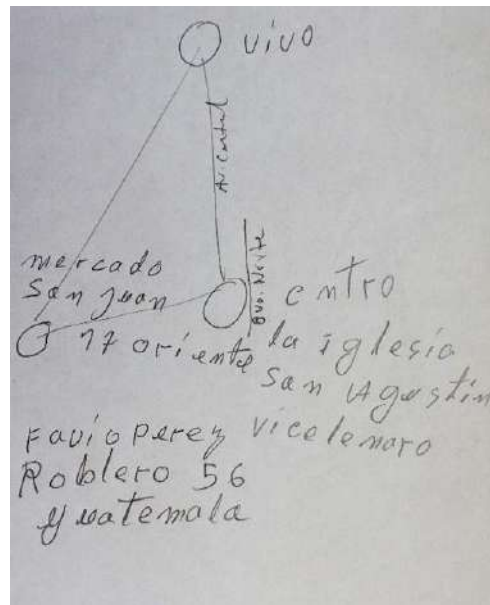 vivo
Av. Central
mercado
San Juan
8va. Norte
centro
17 oriente
la iglesia
San Agustin
Favio perez vicelemoro
Roblero 56
guatemala